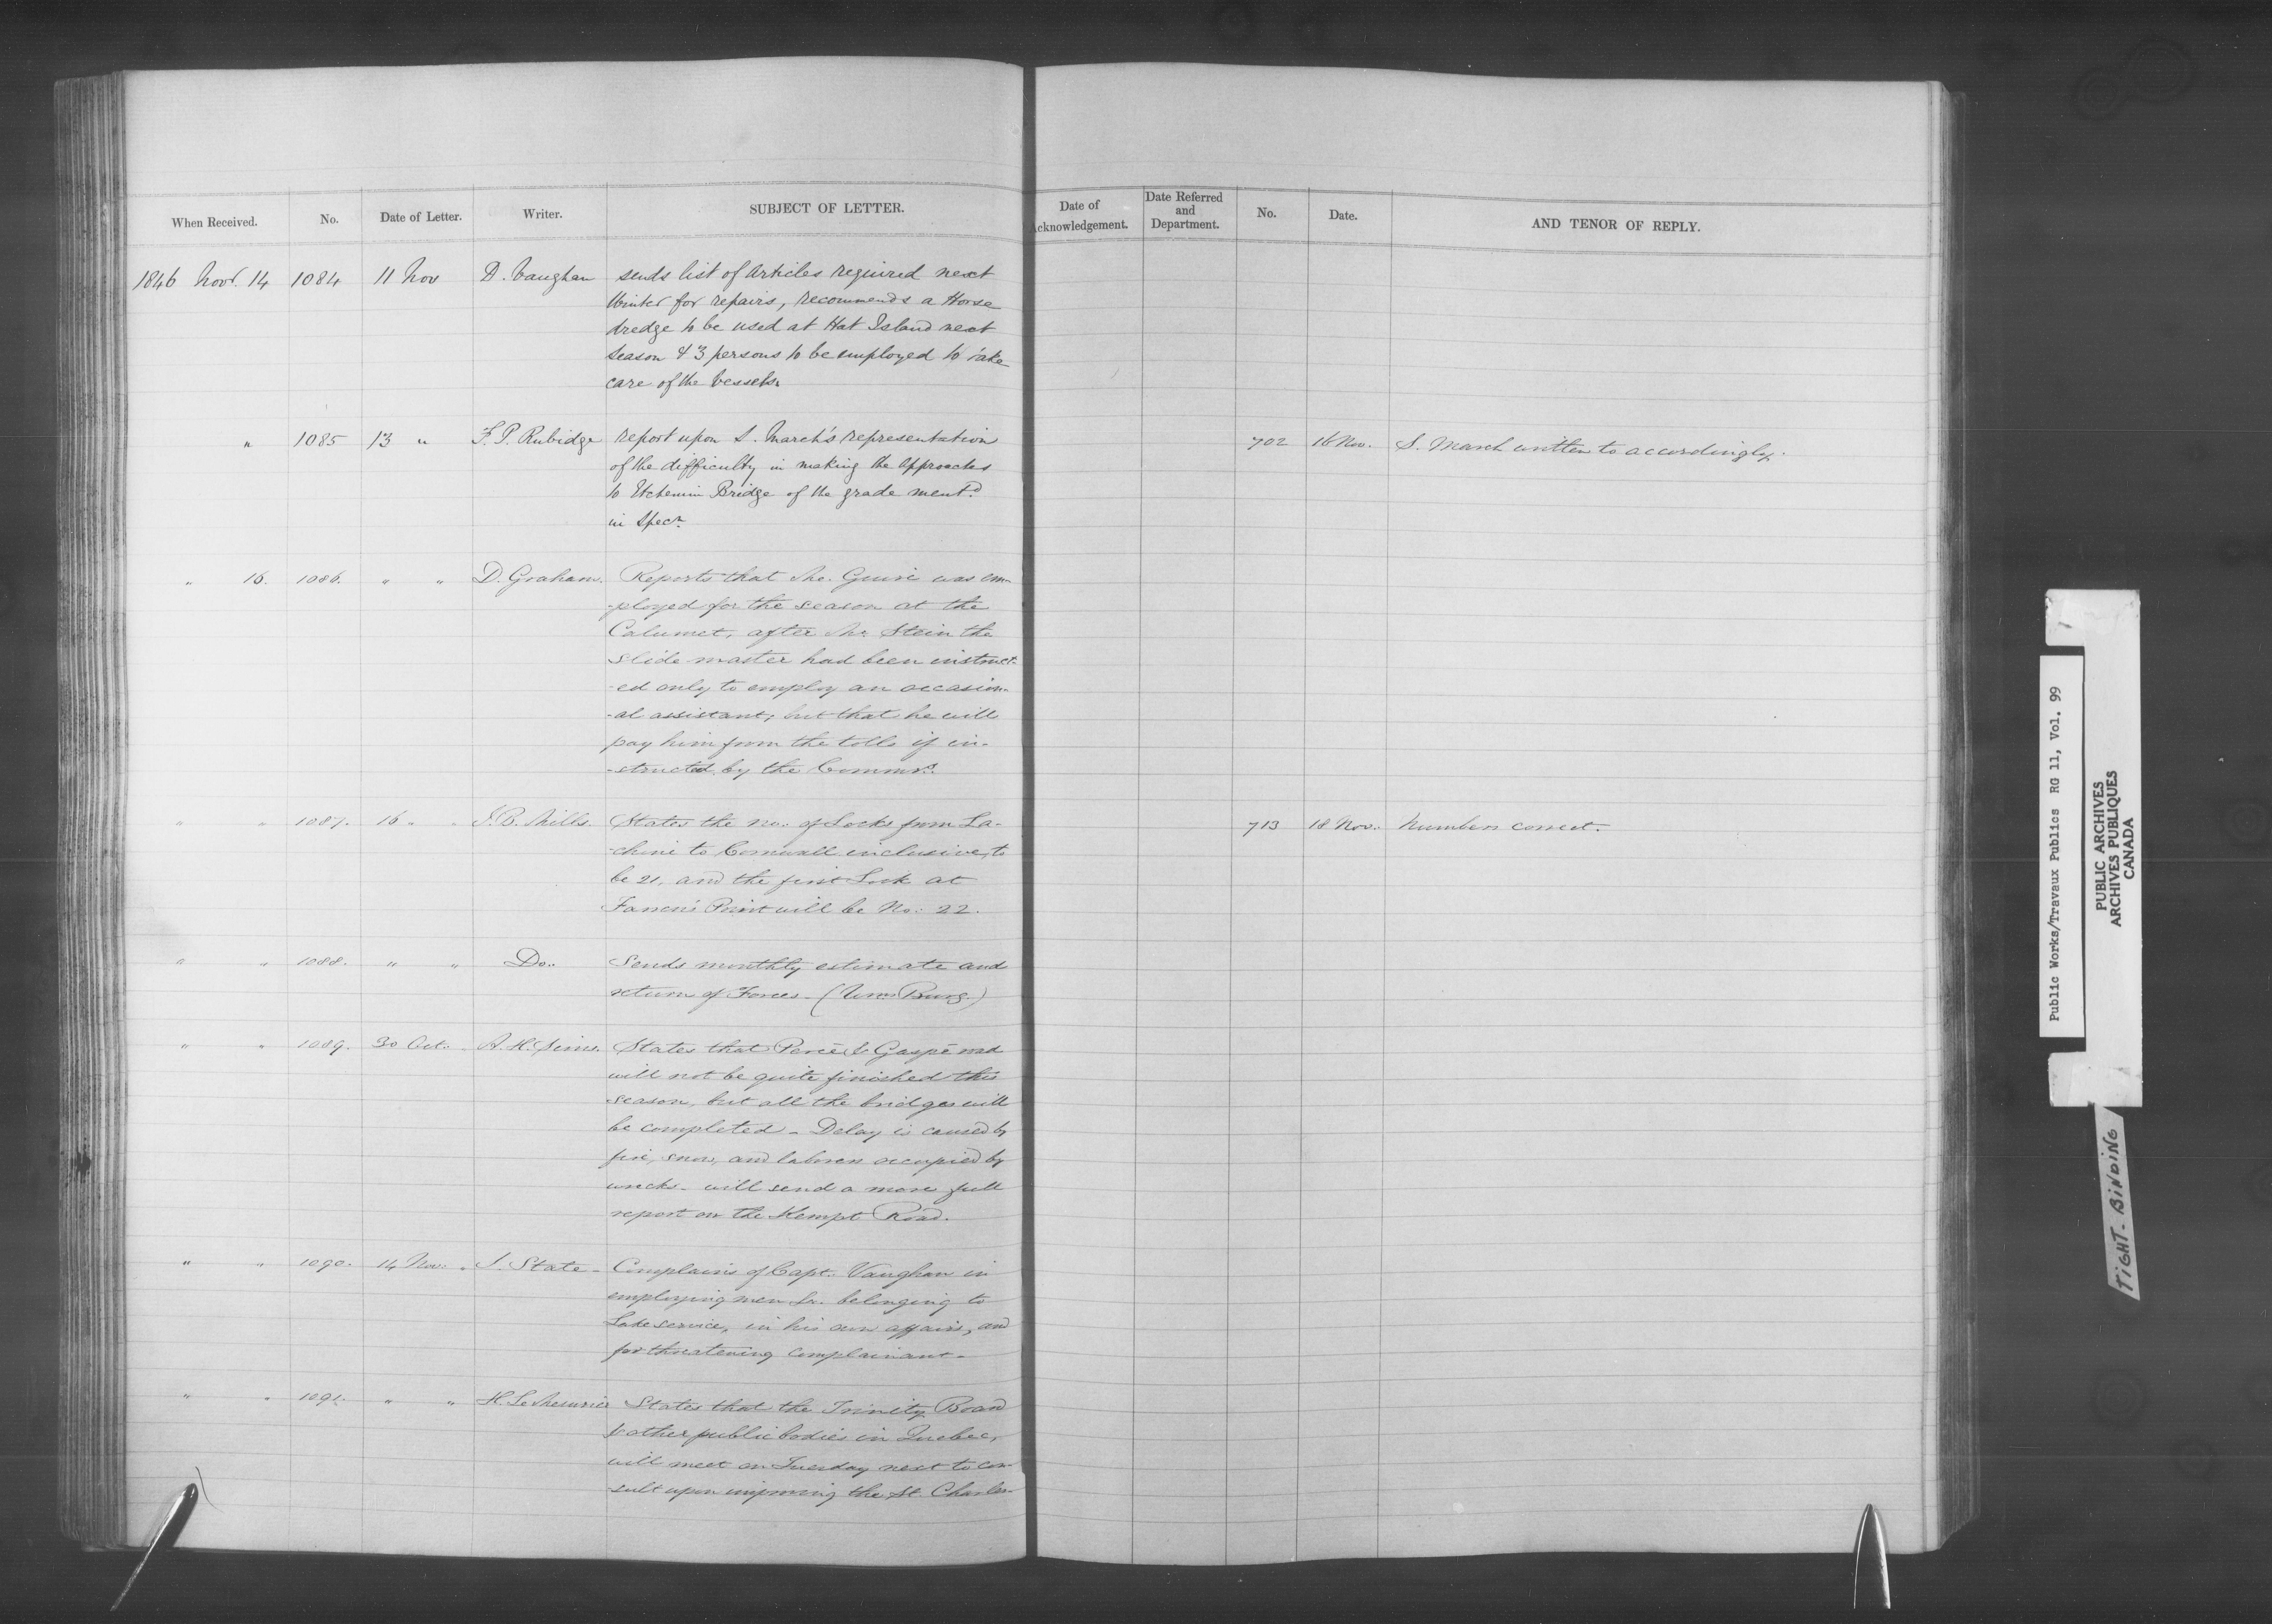 When Received. No. Date of Letter. Writer. SUBJECT OF LETTER.
Date of Acknowledgement. Date Referred and Department. No. Date. AND TENOR OF REPLY.
1846 Novr. 14 1084 11 Nov D. Vaughan sends list of articles required next
Winter for repairs, recommends a Horse
dredge to be used at Hat Island next
season & 3 persons to be employed to take
care of the vessels.
" 1085 13 " F. P. Rubidge report upon S. March's representation
of the difficulty in making the approaches
to Etchemin Bridge of the grade mentd.
in Specn.
702 16 Nov. S. March written to accordingly.
" 16. 1086. " " D. Graham. Reports that Mc. Guire was em-
-ployed for the season at the
Calumet, after Mr. Stein the
slide-master had been instruct-
-ed only to employ an occasion-
-al assistant; but that he will
pay him from the tolls if in-
-structed by the Commrs.
" " 1087. 16 " " J. B. Mills. States the no. of Locks from La-
-chine to Cornwall inclusive, to
be 21, and the first Lock at
Farren's Point will be No. 22.
713 18 Nov. Numbers correct.
" " 1088. " " Do.. Sends monthly estimate and
return of Forces. (Wms. Burg.)
" " 1089. 30 Oct. A. H. Sims. States that Percé & Gaspé road
will not be quite finished this
season, but all the bridges will
be completed - Delay is caused by
fire, snow, and laborers occupied by
wrecks - will send a more full
report on the Kempt Road.
" " 1090. 14 Nov. J. State - Complains of Capt. Vaughan in
employing men &c. belonging to
Lake service, in his own affairs, and
for threatening complainant -
" " 1091. " " H. Le Mesurier States that the Trinity Board
& other public bodies in Quebec,
will meet on Tuesday next to con-
-sult upon improving the St. Charles-
Public Works/Travaux Publics RG 11, Vol. 99
PUBLIC ARCHIVES
ARCHIVES PUBLIQUES
CANADA
TIGHT-BINDING